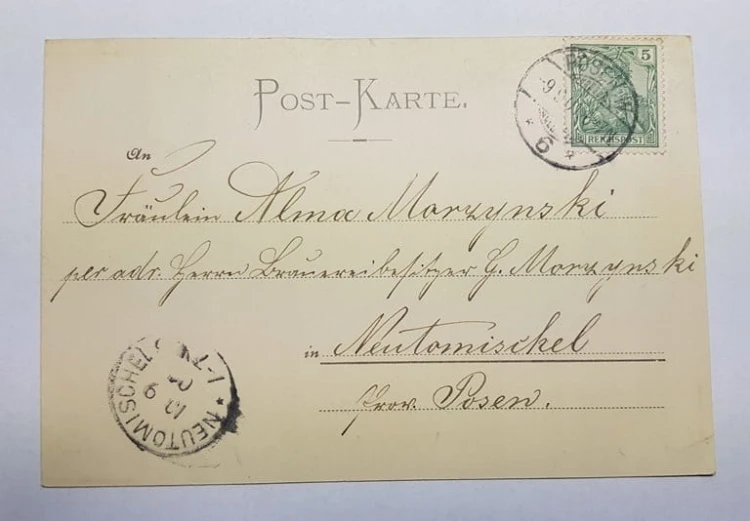 POST-KARTE.
5
REICHSPOST
POSEN
6
An
Fräulein Alma Marzynski
per adr. Herrn Brauereibesitzer H. Marzynski
in Neutomischel
Prov. Posen.
NEUTOMISCHEL
1-7N
12 9